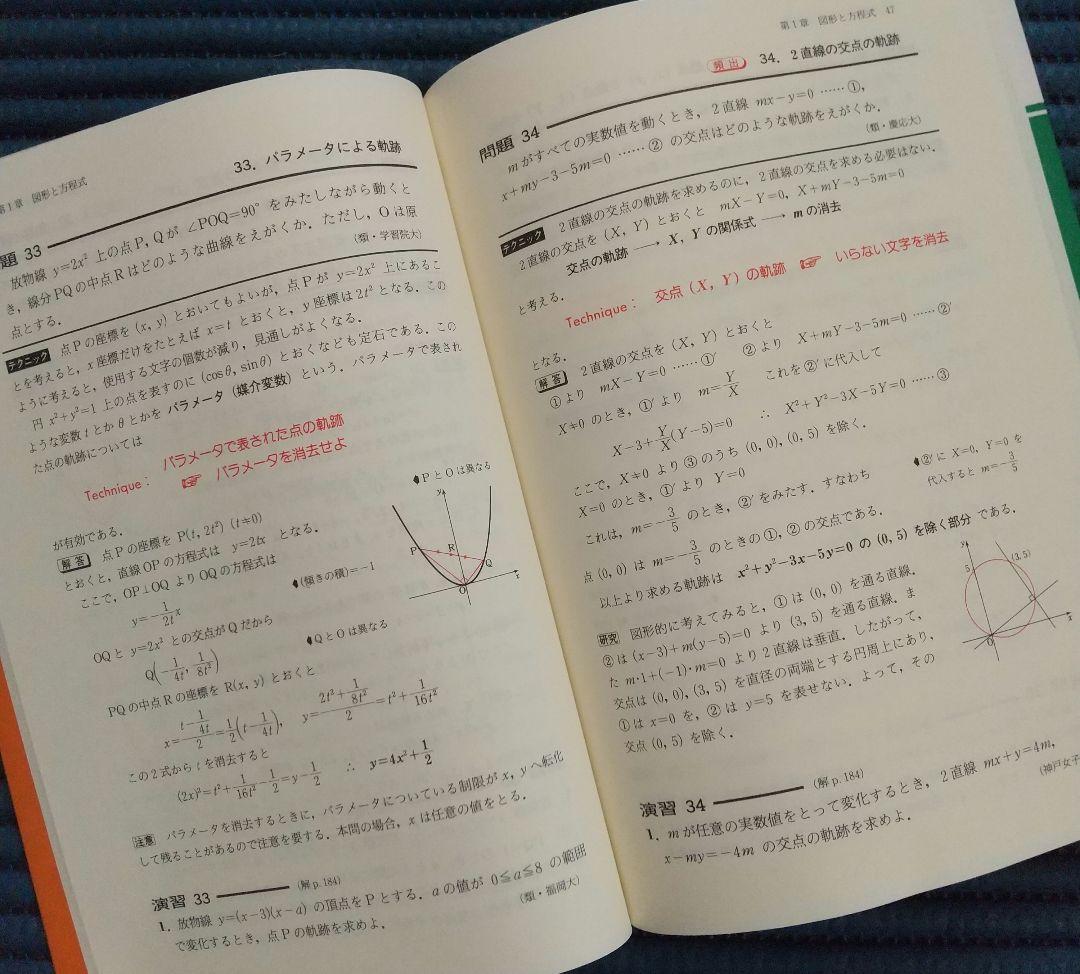 第1章 図形と方程式
33. パラメータによる軌跡
題 33
放物線 y=2x² 上の点P, Qが ∠POQ=90° をみたしながら動くと
き，線分PQの中点Rはどのような曲線をえがくか．ただし，Oは原
点とする．
(類・学習院大)
テクニック 点Pの座標を (x, y) とおいてもよいが，点Pが y=2x² 上にあるこ
とを考えると，x座標だけをたとえば x=t とおくと，y座標は 2t² となる．この
ように考えると，使用する文字の個数が減り，見通しがよくなる．
円 x²+y²=1 上の点を表すのに (cosθ, sinθ) とおくなども定石である．この
ような変数 t とか θ とかを パラメータ（媒介変数）という．パラメータで表され
た点の軌跡については
パラメータで表された点の軌跡
Technique： ☞ パラメータを消去せよ
が有効である．
解答 点Pの座標を P(t, 2t²) (t≠0)
♦PとOは異なる
とおくと，直線OPの方程式は y=2tx となる．
ここで，OP⊥OQ よりOQの方程式は
y=-1/2t x
♦(傾きの積)=-1
OQと y=2x² との交点がQだから
Q(-1/4t, 1/8t²)
♦QとOは異なる
y
P
R
Q
O
x
PQの中点Rの座標を R(x, y) とおくと
x=(t-1/4t)/2=1/2(t-1/4t), y=(2t²+1/8t²)/2=t²+1/16t²
この2式から t を消去すると
(2x)²=t²+1/16t²-1/2=y-1/2 ∴ y=4x²+1/2
注意 パラメータを消去するときに，パラメータについている制限が x, y へ転化
して残ることがあるので注意を要する．本問の場合，x は任意の値をとる．
演習 33
(解 p.184)
1. 放物線 y=(x-3)(x-a) の頂点をPとする．aの値が 0≦a≦8 の範囲
で変化するとき，点Pの軌跡を求めよ．
(類・福岡大)
第1章 図形と方程式 47
頻出 34. 2直線の交点の軌跡
問題 34
mがすべての実数値を動くとき，2直線 mx-y=0 ……①，
x+my-3-5m=0 ……② の交点はどのような軌跡をえがくか．
(類・慶応大)
テクニック 2直線の交点の軌跡を求めるのに，2直線の交点を求める必要はない．
2直線の交点を (X, Y) とおくと mX-Y=0, X+mY-3-5m=0
交点の軌跡 → X, Y の関係式 → m の消去
と考える．
Technique： 交点 (X, Y) の軌跡 ☞ いらない文字を消去
となる．
解答 2直線の交点を (X, Y) とおくと
①より mX-Y=0 ……①′ ②より X+mY-3-5m=0 ……②′
X≠0 のとき，①′より m=Y/X これを②′に代入して
X-3+Y/X(Y-5)=0 ∴ X²+Y²-3X-5Y=0 ……③
ここで，X≠0 より③のうち (0, 0), (0, 5) を除く．
X=0 のとき，①′より Y=0
♦②′に X=0, Y=0 を
代入すると m=-3/5
これは，m=-3/5 のとき，②′をみたす．すなわち
点 (0, 0) は m=-3/5 のときの①，②の交点である．
以上より求める軌跡は x²+y²-3x-5y=0 の (0, 5) を除く部分 である．
研究 図形的に考えてみると，①は (0, 0) を通る直線．
②は (x-3)+m(y-5)=0 より (3, 5) を通る直線．ま
た m·1+(-1)·m=0 より2直線は垂直．したがって，
交点は (0, 0), (3, 5) を直径の両端とする円周上にあり，
①は x=0 を，②は y=5 を表せない．よって，その
交点 (0, 5) を除く．
y
5
(3, 5)
O
x
演習 34
(解 p.184)
1. mが任意の実数値をとって変化するとき，2直線 mx+y=4m，
x-my=-4m の交点の軌跡を求めよ．
(神戸女子